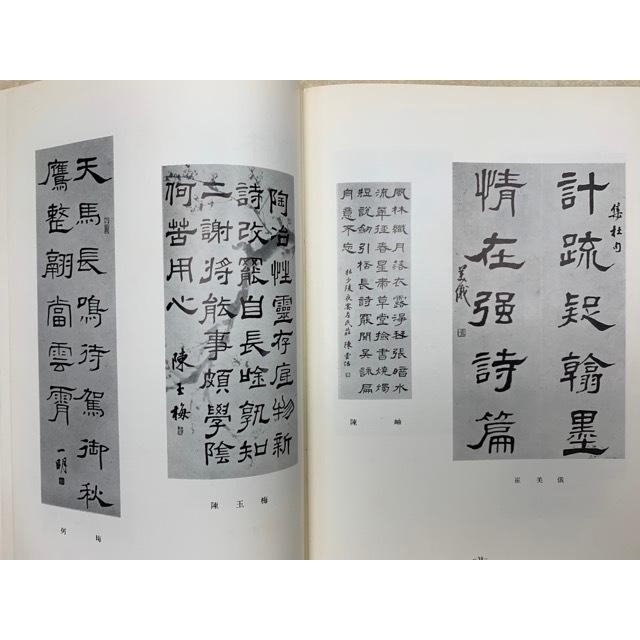 集杜句
計疏疑翰墨
情在强詩篇
美儀
崔美儀
風林纖月落衣露淨琴張暗水
流花徑春星帶草堂撿書燒燭
短說劍引杯長詩罷聞吳詠扁
舟意不忘 杜少陵夜宴左氏莊 陳
陳岫
陶冶性靈存底物新
詩改罷自長唫孰知
二謝將能事頗學陰
何苦用心
陳玉梅
陳玉梅
天馬長鳴待駕御秋
鷹整翮當雲霄
一明
何